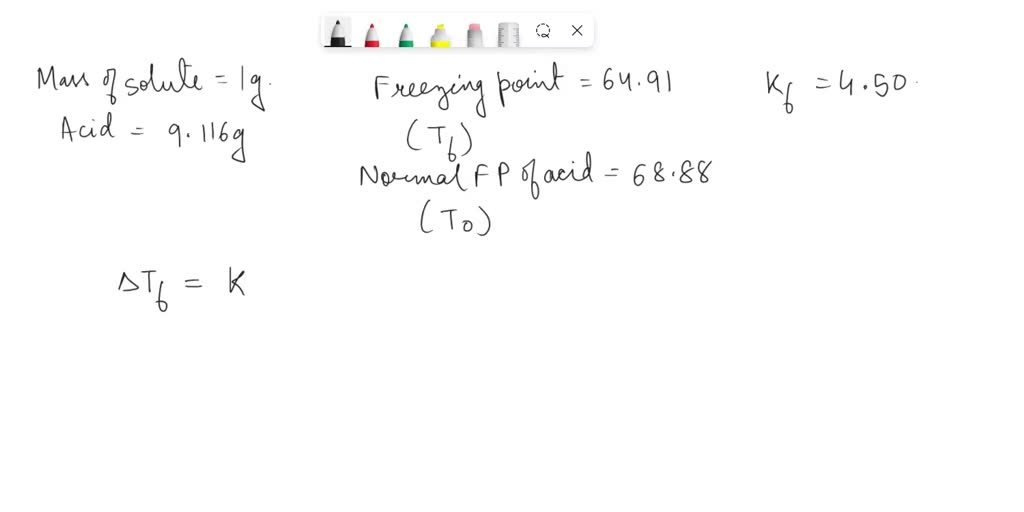 Mass of solute = 1g.
Acid = 9.116g
Freezing point = 64.91
(Tf)
Normal FP of acid = 68.88
(To)
Kf = 4.50
ΔTf = K